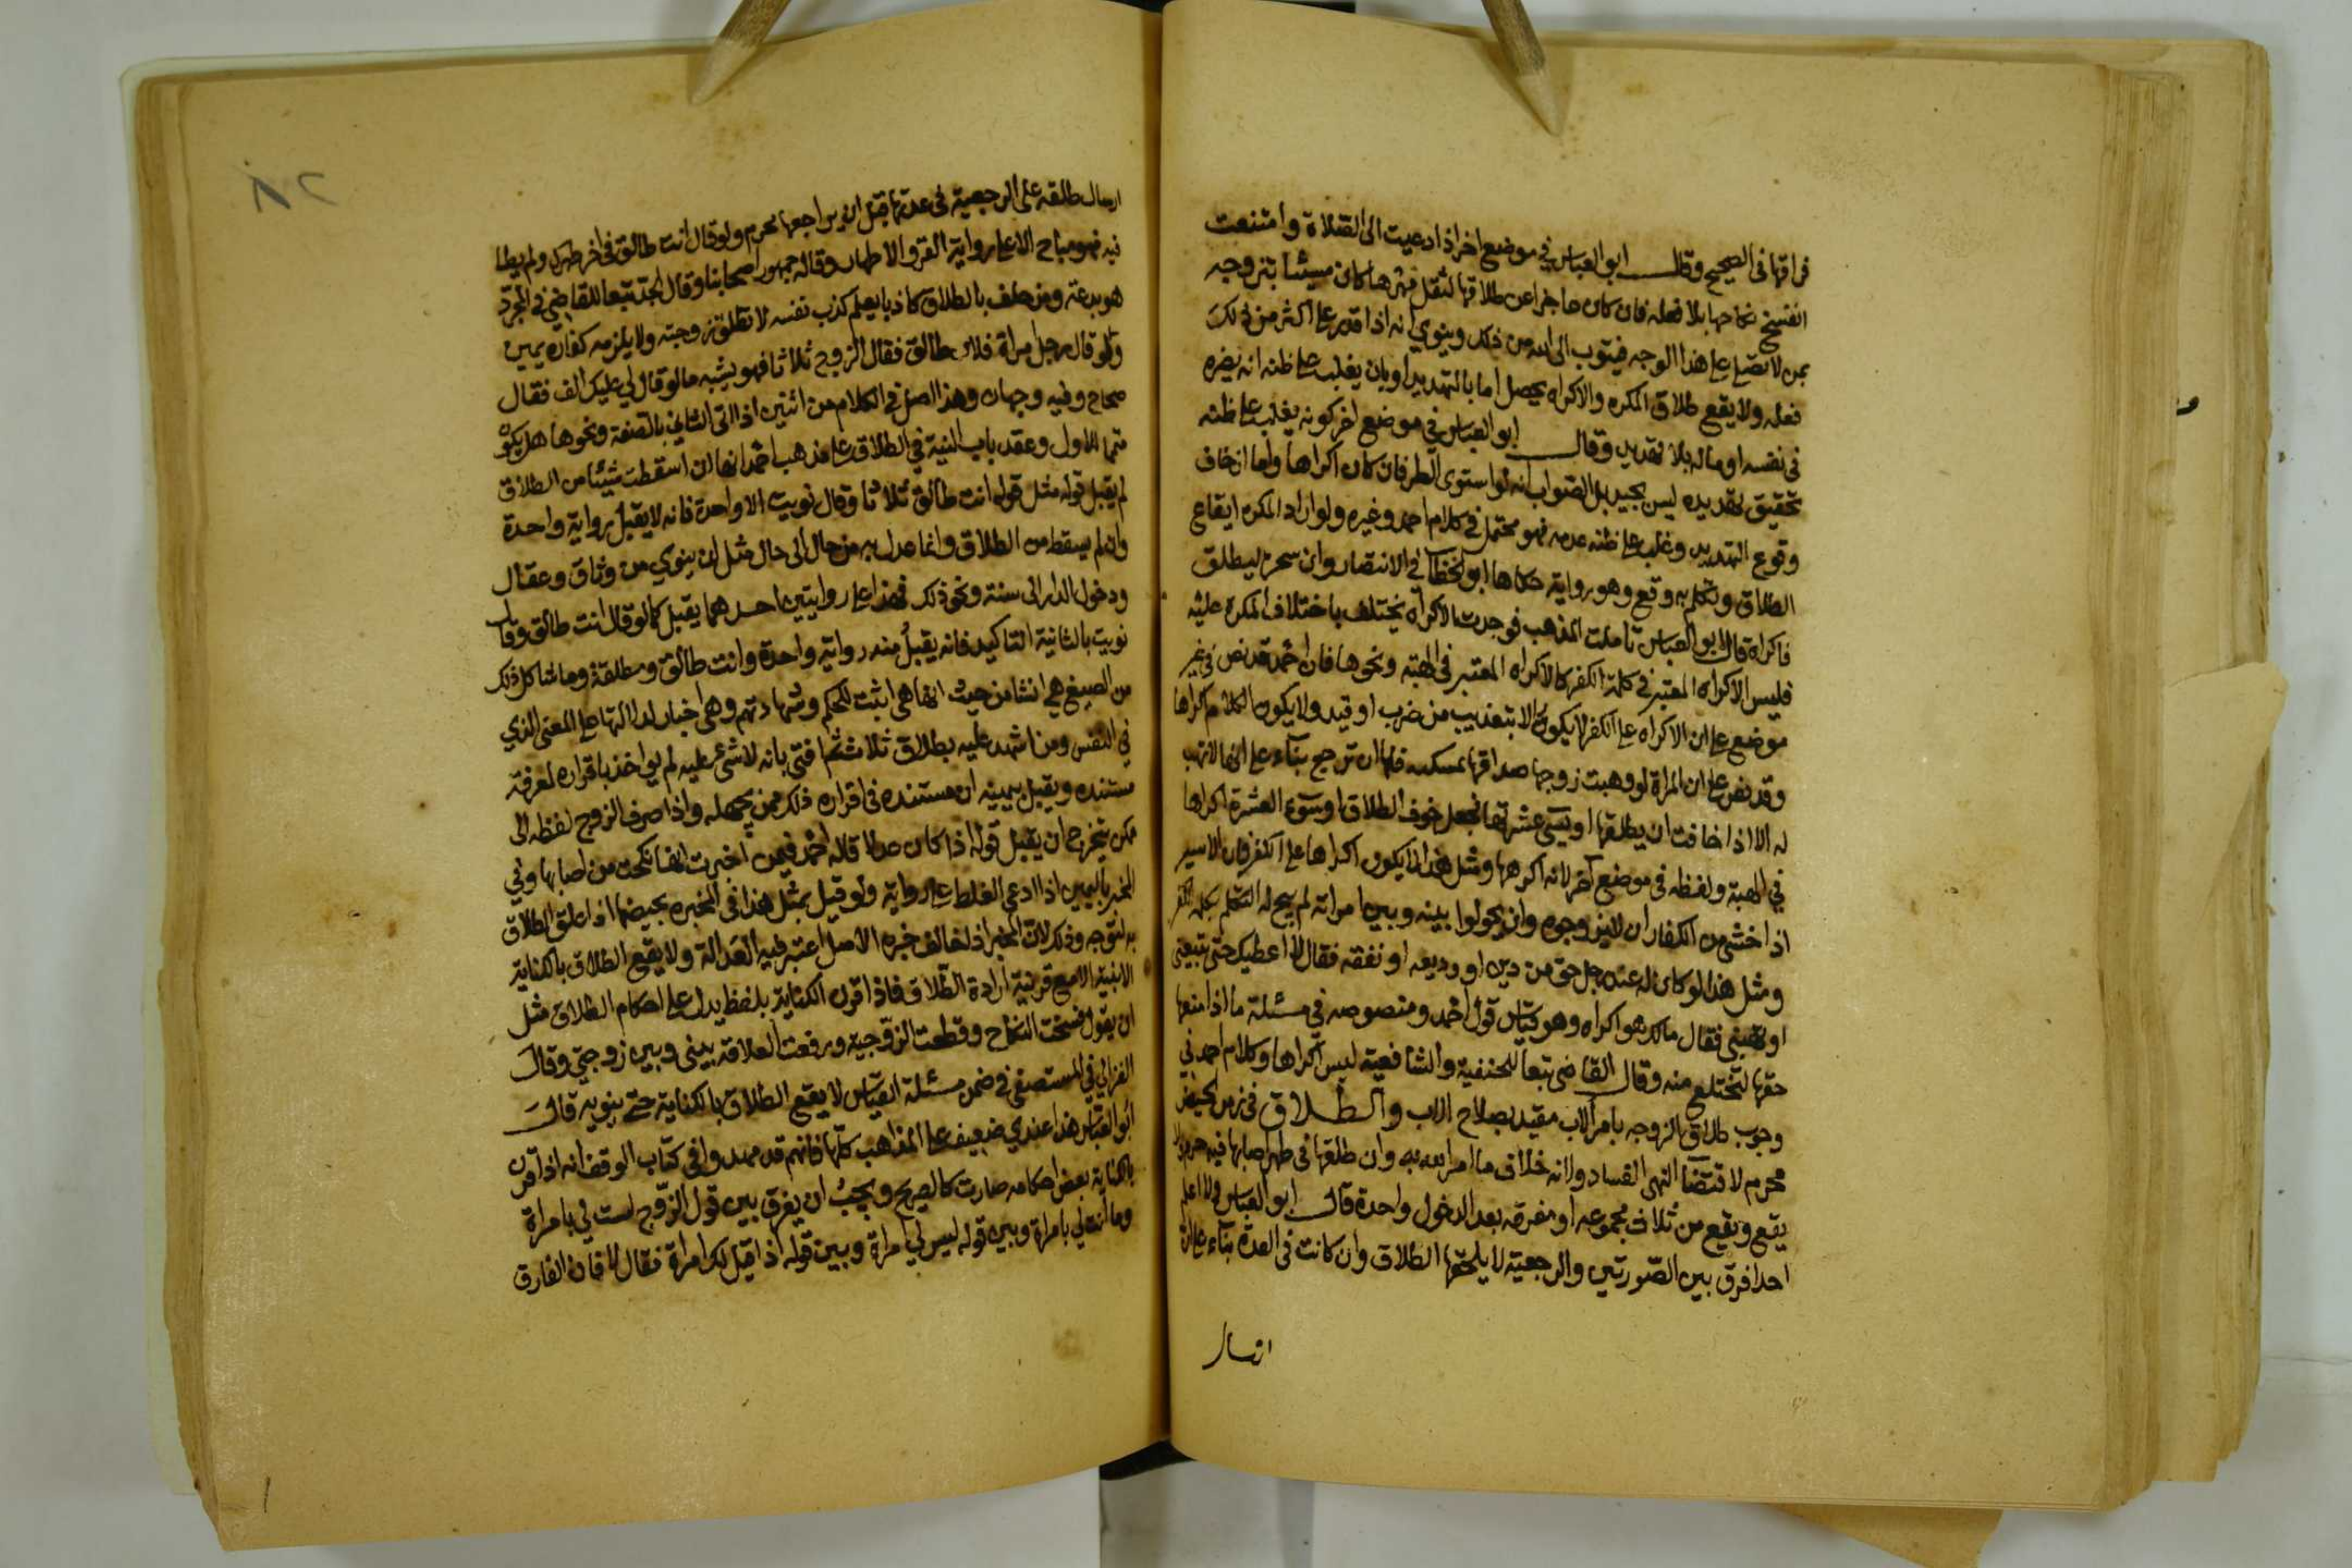 فراقها في الصحيح وقال ابو العباس في موضع اخر اذا دعيت الى الصلاة وامتنعت
انفسخ نكاحها بلا فعله فان كان عاجزا عن طلاقها لثقل مهرها كان مسيئا بتزوجه
بمن لا تصلي على هذا الوجه فيتوب الى الله من ذلك وينوي انه اذا قدر على اكثر من ذلك
فعله ولا يقع طلاق المكره والاكراه يحصل اما بالتهديد او بان يغلب على ظنه انه يضره
في نفسه او ماله بلا تهديد وقال ابو العباس في موضع اخر كونه يغلب على ظنه
تحقيق تهديده ليس بجيد بل الصواب انه لو استوى الطرفان كان اكراها واما ان خاف
وقوع التهديد وغلب على ظنه عدمه فهو محتمل في كلام احمد وغيره ولو اراد المكره ايقاع
الطلاق وتكلم به وقع وهو رواية حكاها ابو الخطاب في الانتصار وان سحر ليطلق
فاكراه قال ابو العباس تاملت المذهب فوجدت الاكراه يختلف باختلاف المكره عليه
فليس الاكراه المعتبر في كلمة الكفر كالاكراه المعتبر في الهبة ونحوها فان احمد قد نص في غير
موضع على ان الاكراه على الكفر لا يكون الا بتعذيب من ضرب او قيد ولا يكون الكلام اكراها
وقد نص على ان المراة لو وهبت زوجها صداقها بمسكنه فلها ان ترجع بناء على انها لا تهب
له الا اذا خافت ان يطلقها او يسيء عشرتها فجعل خوف الطلاق او سوء العشرة اكراها
في الهبة ولفظه في موضع آخر لانه اكرهها ومثل هذا لا يكون اكراها على الكفر فان الاسير
اذا خشي من الكفار ان لا يزوجوه وان يحولوا بينه وبين امراته لم يبح له التكلم بكلمة الكفر
ومثل هذا لو كان له عند رجل حق من دين او وديعه او نفقه فقال لا اعطيك حتى تبيعني
او تهبني فقال مالك هو اكراه وهو قياس قول احمد ومنصوصه في مسئلة ما اذا منعها
حقها لتختلع منه وقال القاضي تبعا للحنفية والشافعية ليس اكراها وكلام احمد في
وجوب طلاق الزوجه بامر الاب مقيد بصلاح الاب والطلاق في زمن الحيض
محرم لاقتضا النهي الفساد ولانه خلاف ما امر الله به وان طلقها في طهر اصابها فيه حرم ولا
يقع ويقع من ثلاث مجموعه او مفرقه بعد الدخول واحدة قال ابو العباس ولا اعلم
احدا فرق بين الصورتين والرجعية لا يلحقها الطلاق وان كانت في العدة بناء على ان
ارسال
٨٢
ارسال طلقه على الرجعية في عدتها قبل ان يراجعها محرم ولو قال انت طالق في اخر طهرك ولم يطا
فيه فهو مباح الا على رواية القرو الاطهار وقاله جمهور اصحابنا وقال الجد تبعا للقاضي في المجرد
هو بدعة ومن حلف بالطلاق كاذبا يعلم كذب نفسه لا تطلق زوجته ولا يلزمه كفارة يمين
ولو قال رجل امراة فلان طالق فقال الزوج ثلاثا فهو يشبه ما لو قال لي عليك الف فقال
صحاح وفيه وجهان وهذا اصل في الكلام من اثنين اذا اتى الثاني بالصفة ونحوها هل يكون
متمما للاول وعقد باب النية في الطلاق على مذهب احمد انها ان اسقطت شيئا من الطلاق
لم يقبل قوله مثل قوله انت طالق ثلاثا وقال نويت الا واحدة فانه لا يقبل رواية واحدة
وان لم يسقط من الطلاق وانما عدل به من حال الى حال مثل ان ينوي من وثاق وعقال
ودخول الدار الى سنة ونحو ذلك فهذا على روايتين احدهما يقبل كما لو قال انت طالق وقال
نويت بالثانية التاكيد فانه يقبل منه رواية واحدة وانت طالق ومطلقة وما شاكل ذلك
من الصيغ هي انشا من حيث انها هي اثبت للحكم وشهادتهم وهي اخبار لدلالتها على المعنى الذي
في النفس ومن اشهد عليه بطلاق ثلاث ثم افتي بانه لا شيء عليه لم يواخذ باقراره لمعرفة
مستنده ويقبل بيمينه ان مستنده في اقراره ذلك ممن يجهله واذا صرف الزوج لفظه الى
ممكن يتخرج ان يقبل قوله اذا كان عدلا كما قاله احمد فيمن اخبرت انها نكحت من اصابها وفي
المخبر باليمين اذا ادعى الغلط على رواية ولو قيل بمثل هذا في المخبرة بحيضها اذا علق الطلاق
به لتوجه وذلك لان المخبر اذا خالف خبره الاصل اعتبر فيه العدالة ولا يقع الطلاق بالكناية
الا بنية الا مع قرينة ارادة الطلاق فاذا اقرن الكناية بلفظ يدل على احكام الطلاق مثل
ان يقول فسخت النكاح وقطعت الزوجية ورفعت العلاقة بيني وبين زوجتي وقال
الغزالي في المستصفى في ضمن مسئلة القياس لا يقع الطلاق بالكناية حتى ينويه قال
ابو العباس هذا عندي ضعيف على المذاهب كلها فانهم قد مهدوا في كتاب الوقف انه اذا قرن
بالكناية بعض احكامه صارت كالصريح ويجب ان يفرق بين قول الزوج لست لي بامراة
وما انت لي بامراة وبين قوله ليس لي امراة وبين قوله اذا قيل لك امراة فقال لا فان الفارق